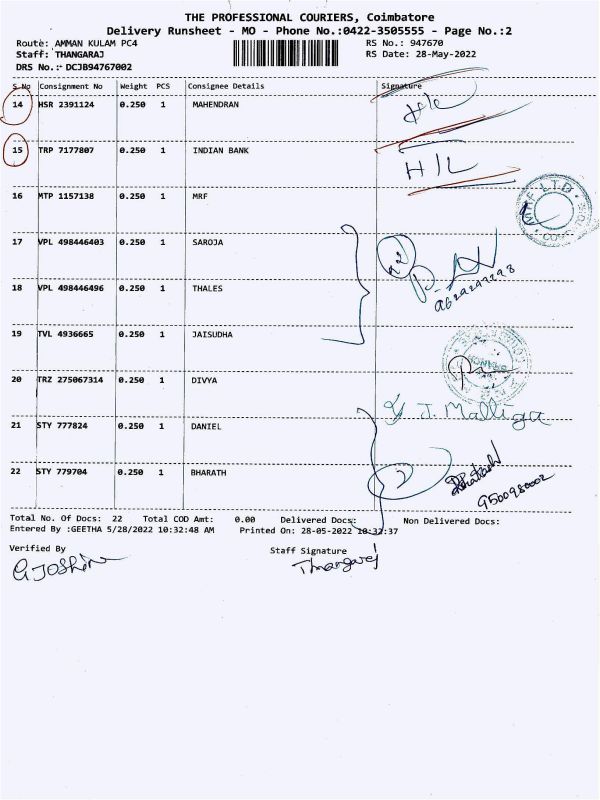 THE PROFESSIONAL COURIERS, Coimbatore
Delivery Runsheet - MO - Phone No.:0422-3505555 - Page No.:2
Route: AMMAN KULAM PC4 RS No.: 947670
Staff: THANGARAJ RS Date: 28-May-2022
DRS No.:- DCJB94767002
S No Consignment No Weight PCS Consignee Details Signature
14 HSR 2391124 0.250 1 MAHENDRAN
15 TRP 7177807 0.250 1 INDIAN BANK H/L
16 MTP 1157138 0.250 1 MRF
MRF LTD
17 VPL 498446403 0.250 1 SAROJA
18 VPL 498446496 0.250 1 THALES
19 TVL 4936665 0.250 1 JAISUDHA
20 TRZ 275067314 0.250 1 DIVYA
J. Malliga
21 STY 777824 0.250 1 DANIEL
22 STY 779704 0.250 1 BHARATH 2
9500980002
Total No. Of Docs: 22 Total COD Amt: 0.00 Delivered Docs: Non Delivered Docs:
Entered By :GEETHA 5/28/2022 10:32:48 AM Printed On: 28-05-2022 10:32:37
Verified By Staff Signature
Thangaraj